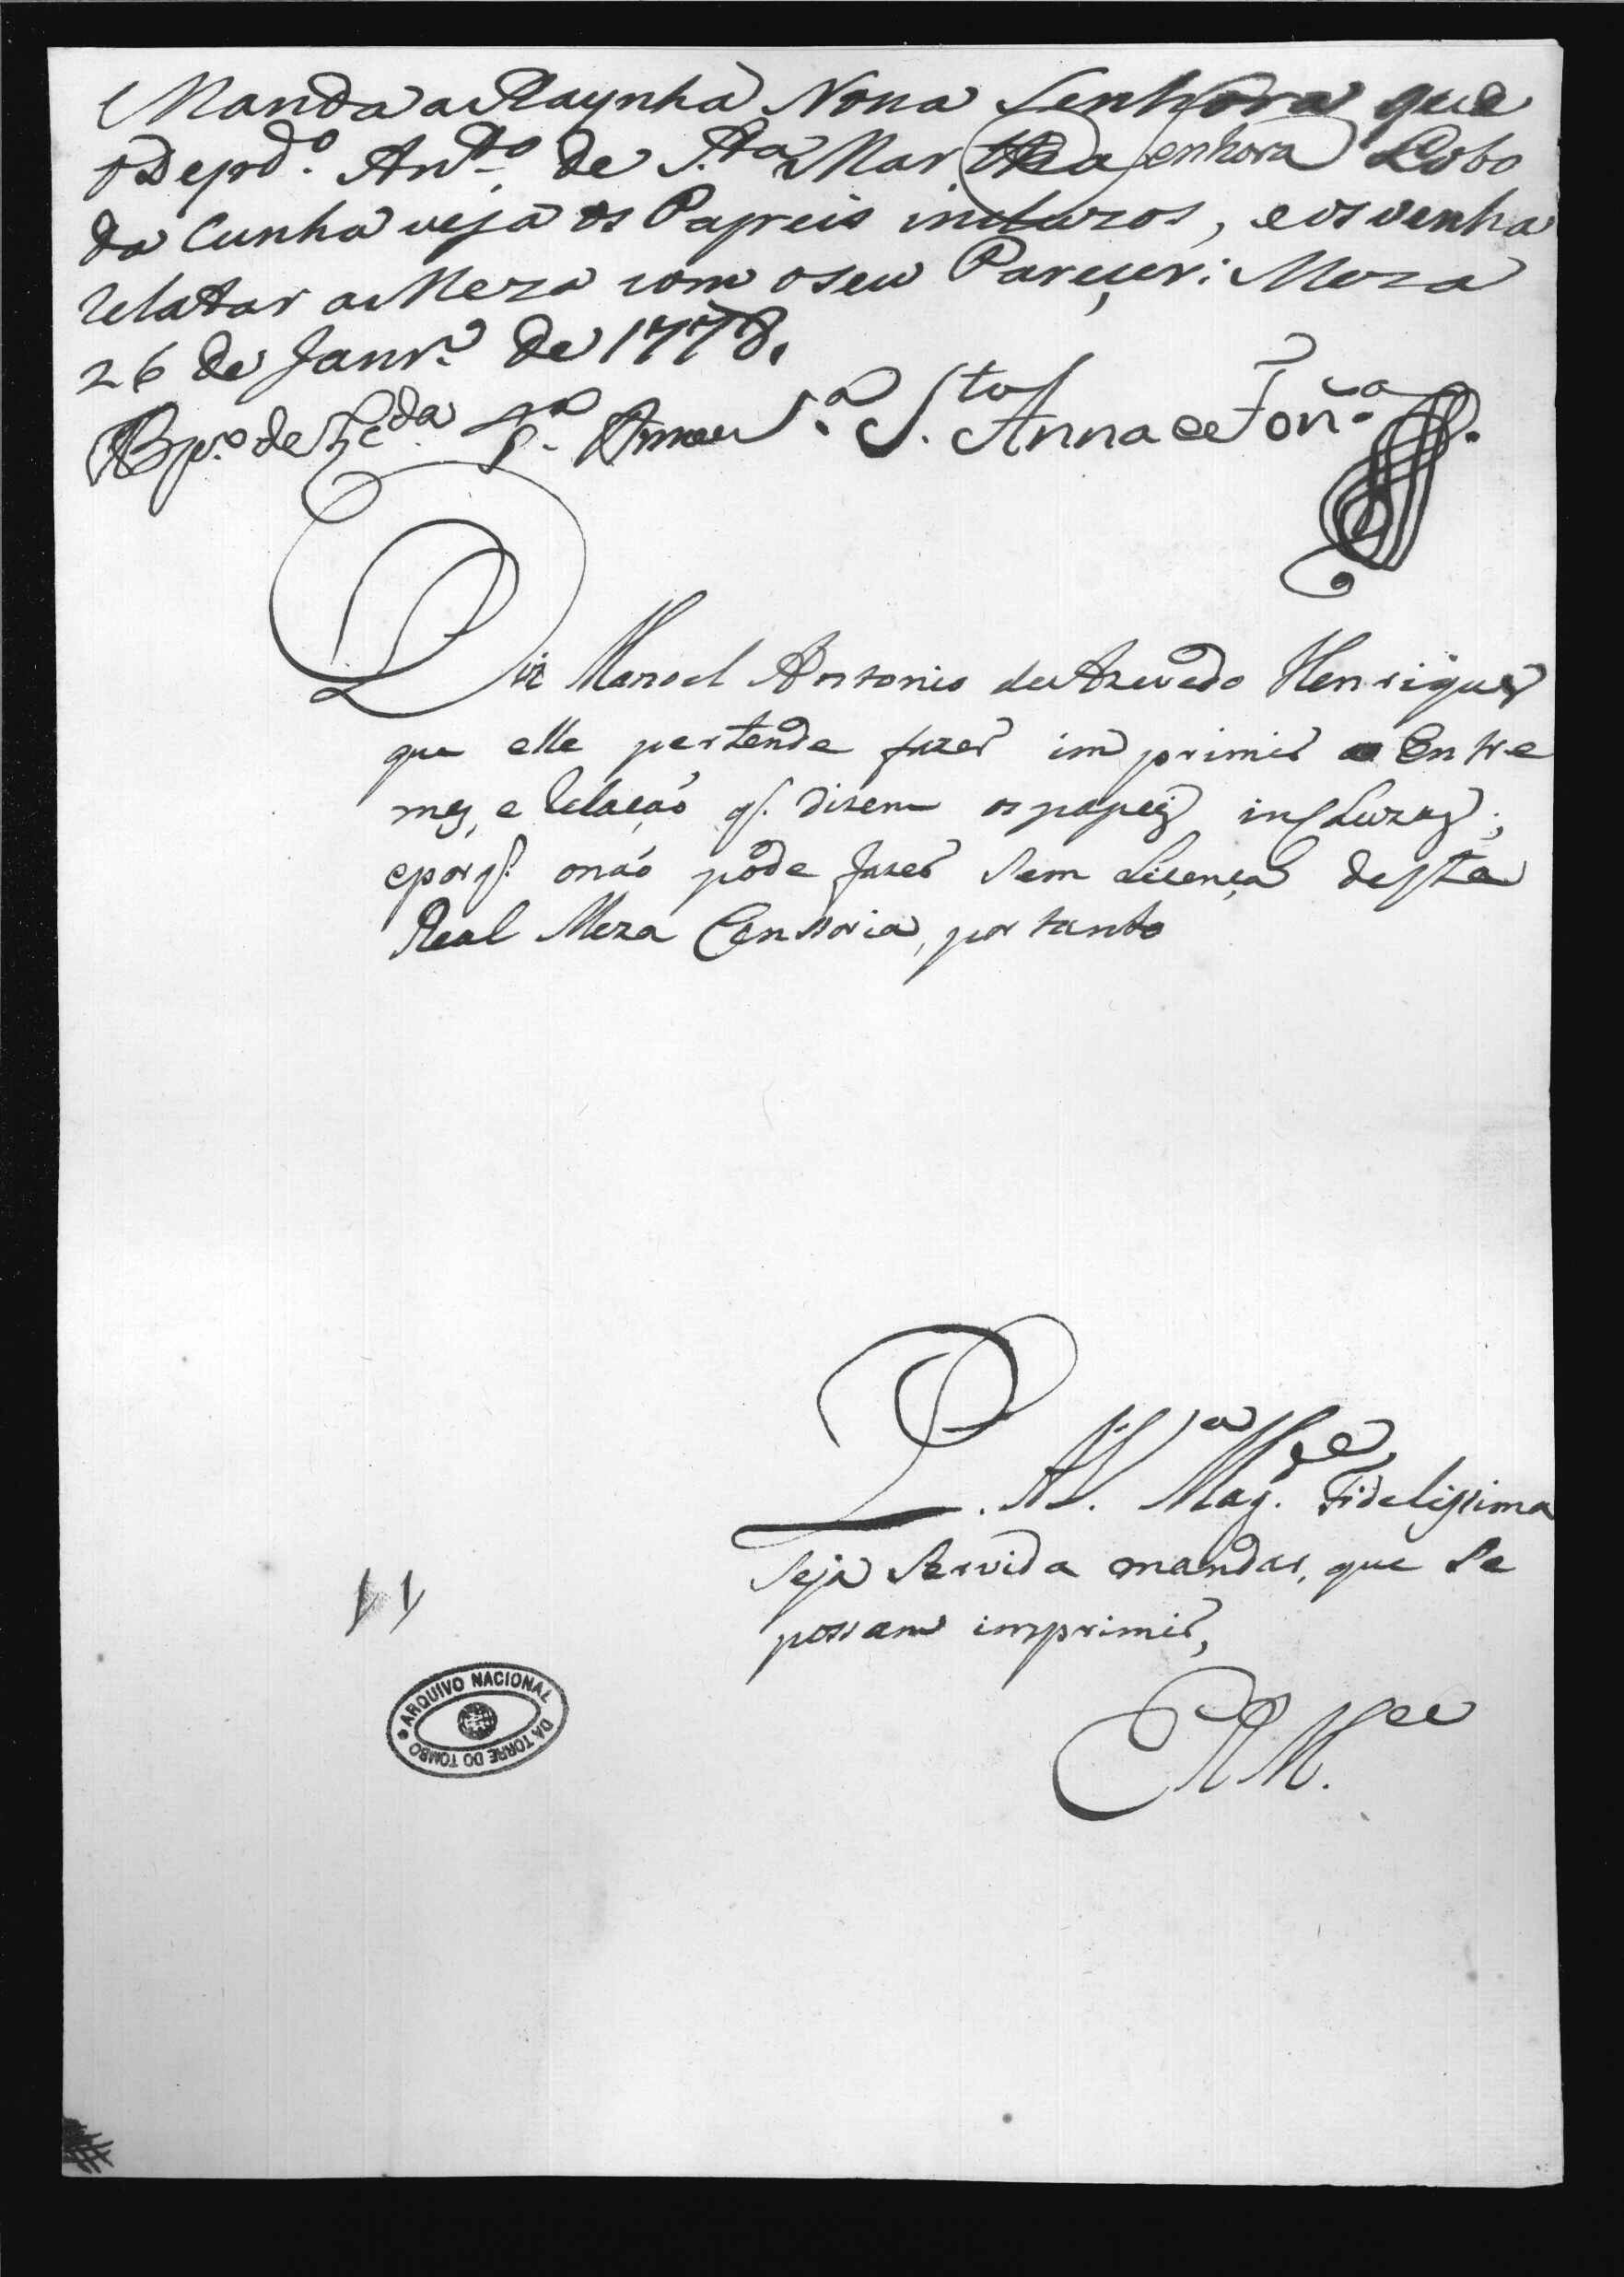 Manda a Raynha Nossa Senhora que
o Depd.º Ant.º de S.ta Martha Lobo
da Cunha veja os Papeis incluzos, e os venha
relatar a Meza com o seu Pareçer: Meza
26 de Janr.º de 1778.
Bp.º de S.ta Anna e Fon.ca
Diz Manoel Antonio de Azevedo Henriques
que elle pertende fazer imprimir o Entre
mez, e Relação q. dizem os papeis incluzos;
e porq. o não póde fazer sem Licença desta
Real Meza Censoria, por tanto
P. A V.a Mag.de Fidelissima
seja Servida mandar, que se
possam imprimir,
E R M.ce
11
ARQUIVO NACIONAL
DA TORRE DO TOMBO